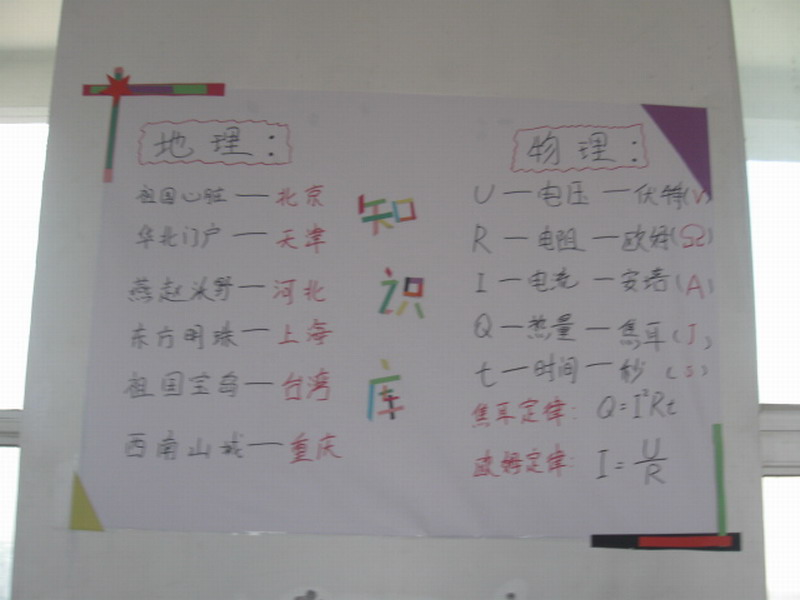 地理：
祖国心脏—北京
华北门户—天津
燕赵沃野—河北
东方明珠—上海
祖国宝岛—台湾
西南山城—重庆
知
识
库
物理：
U—电压—伏特(V)
R—电阻—欧姆(Ω)
I—电流—安培(A)
Q—热量—焦耳(J)
t—时间—秒(s)
焦耳定律：Q=I²Rt
欧姆定律：I=U/R